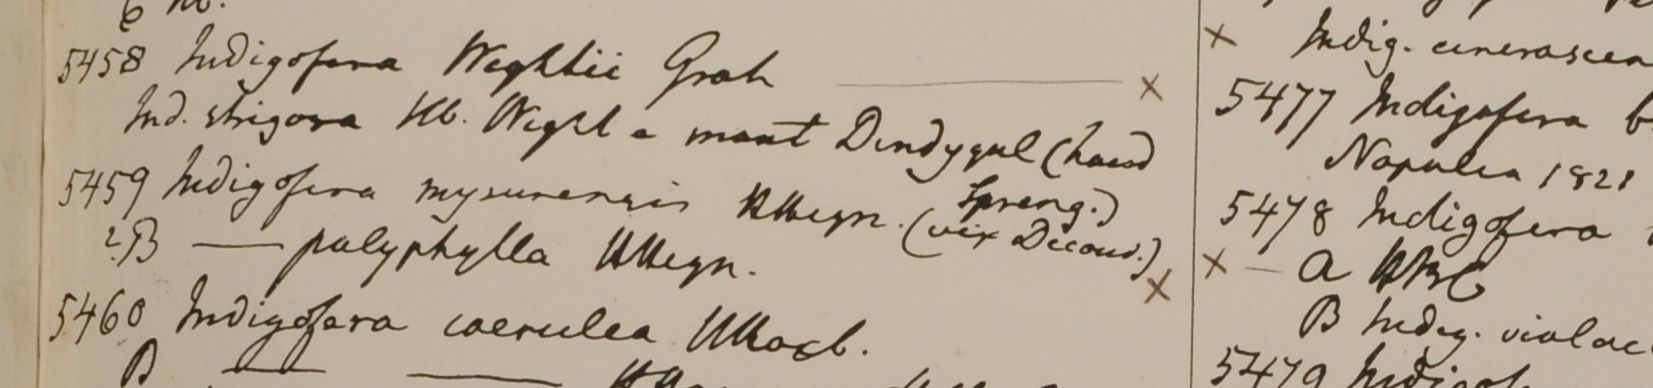 5458 Indigofera Wightii Grah x
Ind. strigosa Hb. Wight e mont Dindygul (haud
Spreng.)
5459 Indigofera mysurensis HHeyn. (vix Decand.)
?B — polyphylla HHeyn. x
5460 Indigofera caerulea HRoxb.
B — —
x Indig. cinerascen
5477 Indigofera b
Napalia 1821
5478 Indigofera
x — a HBC
B Indig. violac
5479 Indigof